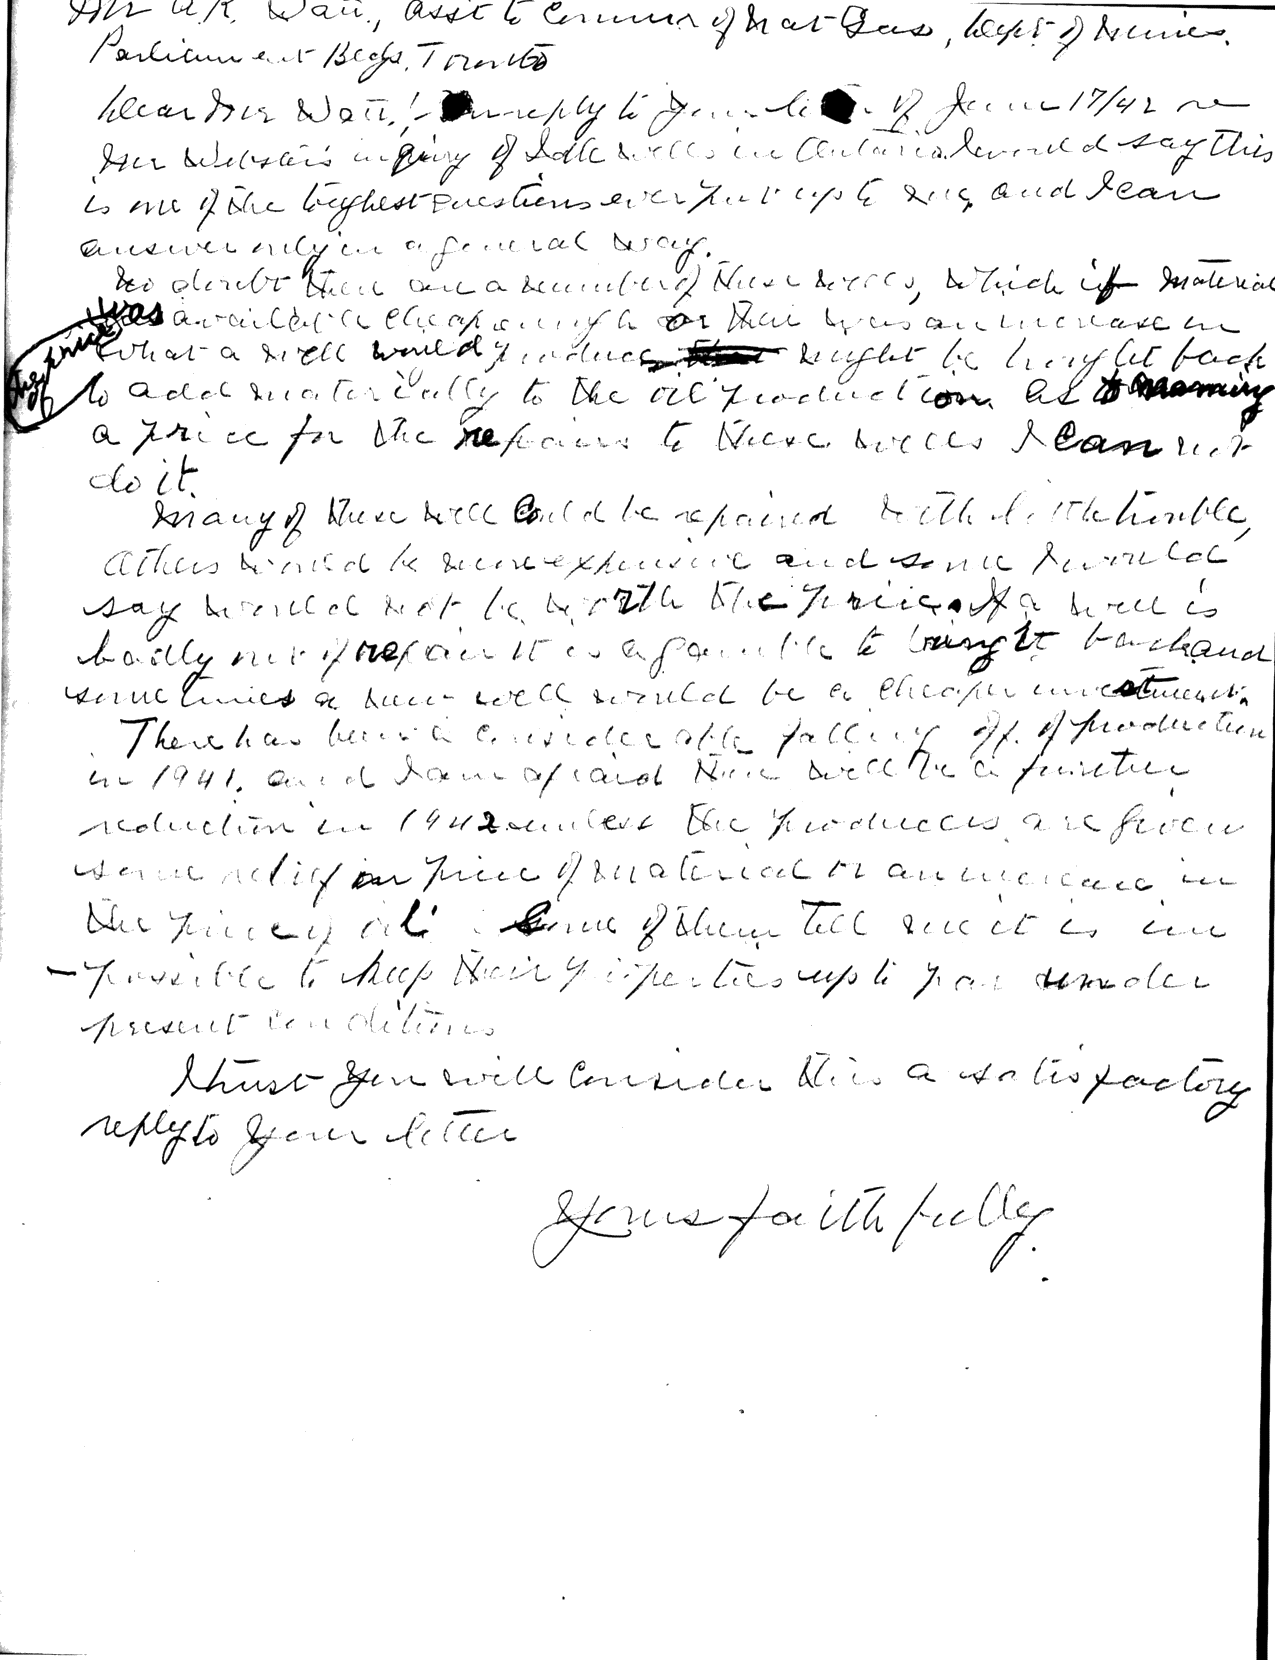 Mr A.R. Watt., Asst to Commr of Nat Gas, Dept. of Mines.
Parliament Bldgs. Toronto
Dear Mr Watt! - In reply to your letter of June 17/42 re
Mr Webster's inquiry of Idle wells in Ontario. I would say this
is one of the toughest questions ever put up to me, and I can
answer only in a general way.
No doubt there are a number of these wells, which if material
was available cheap enough or there was an increase in
the price of
what a well would produce might be brought back
to add materially to the oil production. As to naming
a price for the repairs to these wells I can not
do it.
Many of these well could be repaired with little trouble,
others would be more expensive and some I would
say would not be worth the price. If a well is
badly out of repair it is a gamble to bring it back and
sometimes a new well would be a cheaper investment.
There has been a considerable falling off of production
in 1941. and I am afraid there will be a further
reduction in 1942 unless the producers are given
some relief in price of material or an increase in
the price of oil. Some of them tell me it is im
-possible to keep their properties up to par under
present conditions
I trust you will consider this a satisfactory
reply to your letter
Yours faithfully.